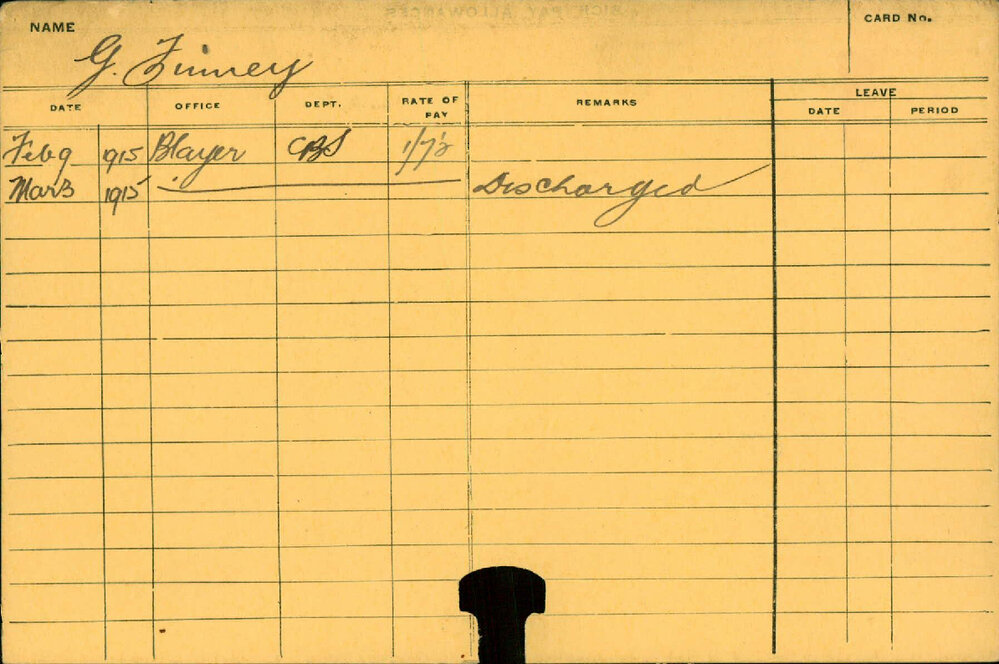 NAME
G. Finney
CARD No.
DATE OFFICE DEPT. RATE OF PAY REMARKS LEAVE
DATE PERIOD
Feb 9 1915 Blayer CBS 1/7½
Mar 3 1915 Discharged